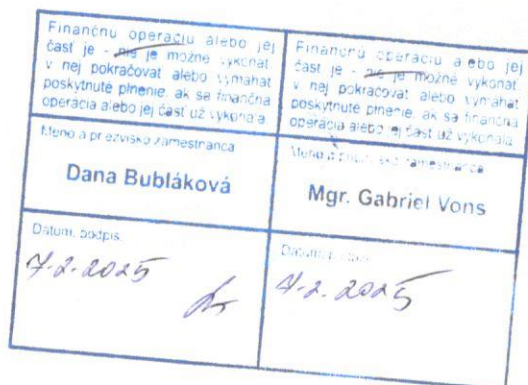 Finančnú operáciu alebo jej
časť je - nie je možné vykonať,
v nej pokračovať alebo vymáhať
poskytnuté plnenie, ak sa finančná
operácia alebo jej časť už vykonala
Meno a priezvisko zamestnanca
Dana Bubláková
Dátum, podpis
7.2.2025
Finančnú operáciu alebo jej
časť je - nie je možné vykonať,
v nej pokračovať alebo vymáhať
poskytnuté plnenie, ak sa finančná
operácia alebo jej časť už vykonala
Meno a priezvisko zamestnanca
Mgr. Gabriel Vons
Dátum, podpis
7.2.2025